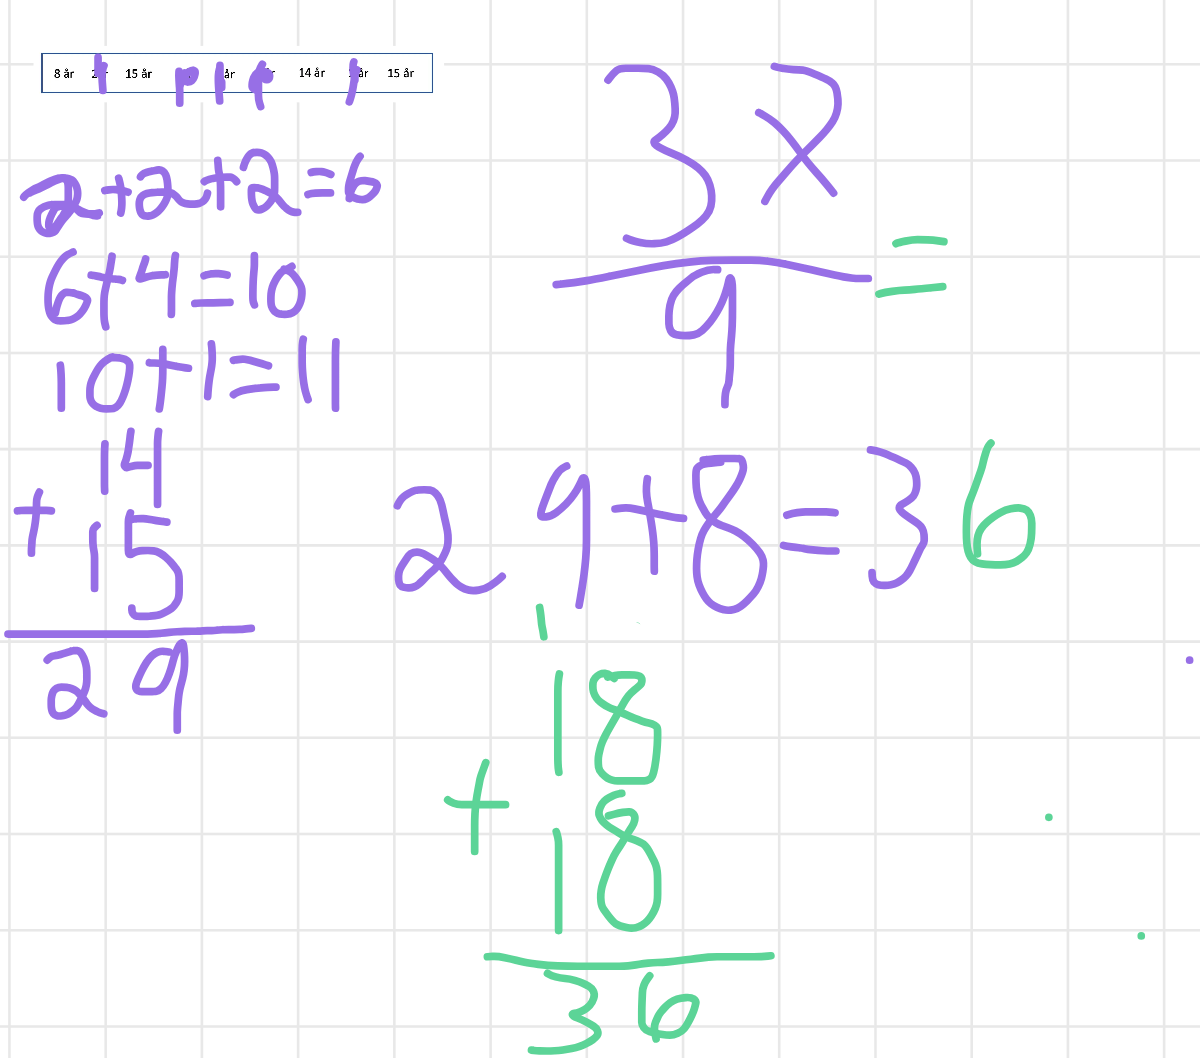 8 år 15 år år 14 år år 15 år
2+2+2=6
6+4=10
10+1=11
14
+
15
29
3x
=
9
29+8=36
1
18
+
18
36